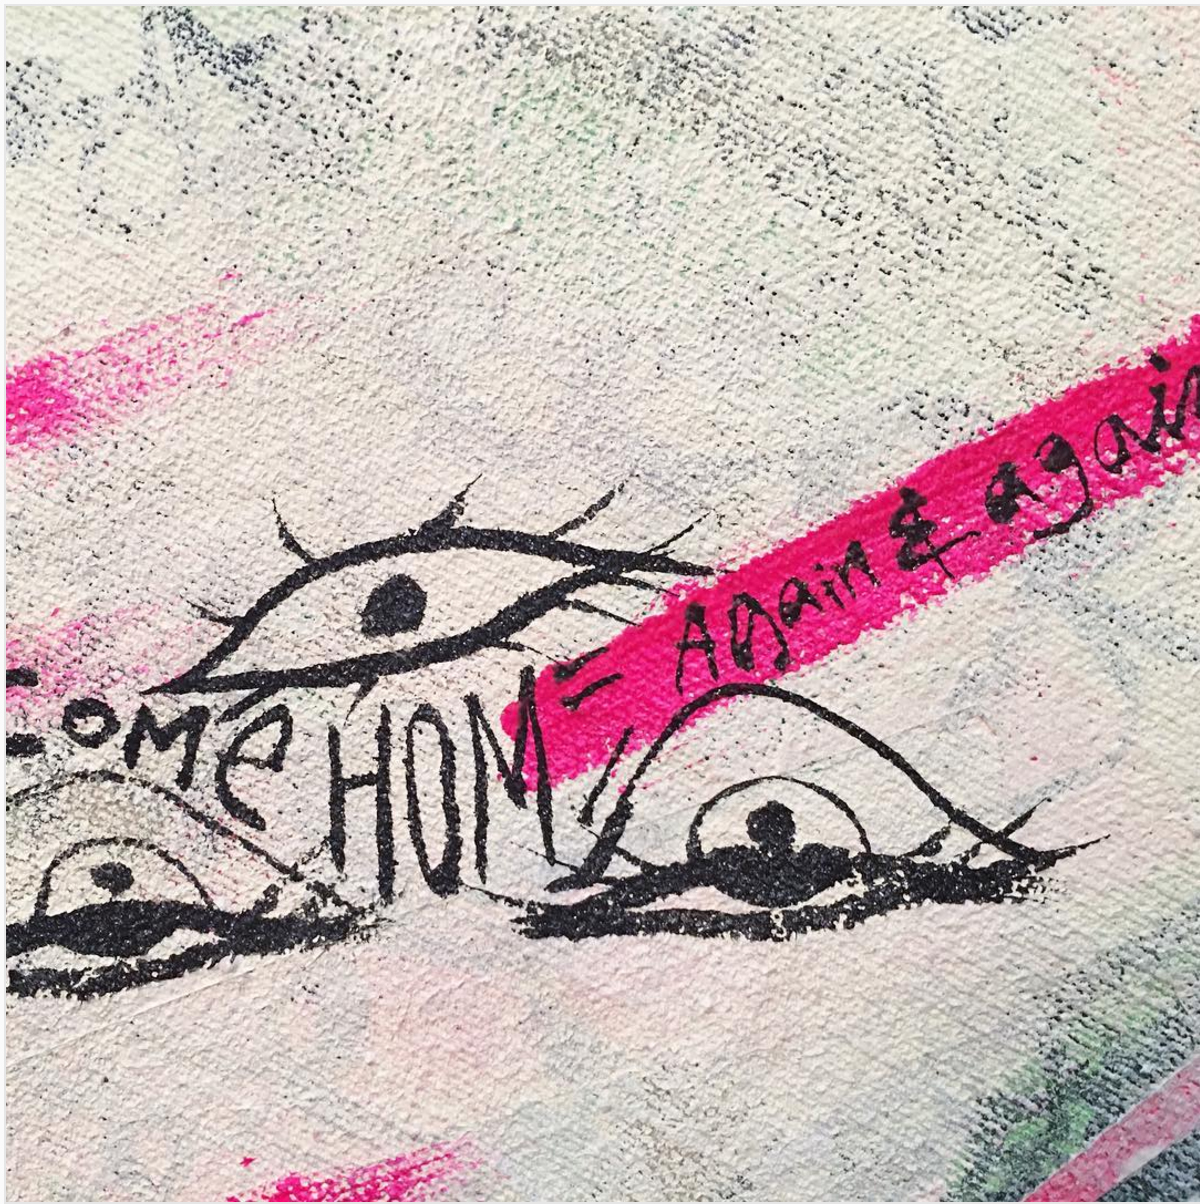 COMe HOM = Again & again